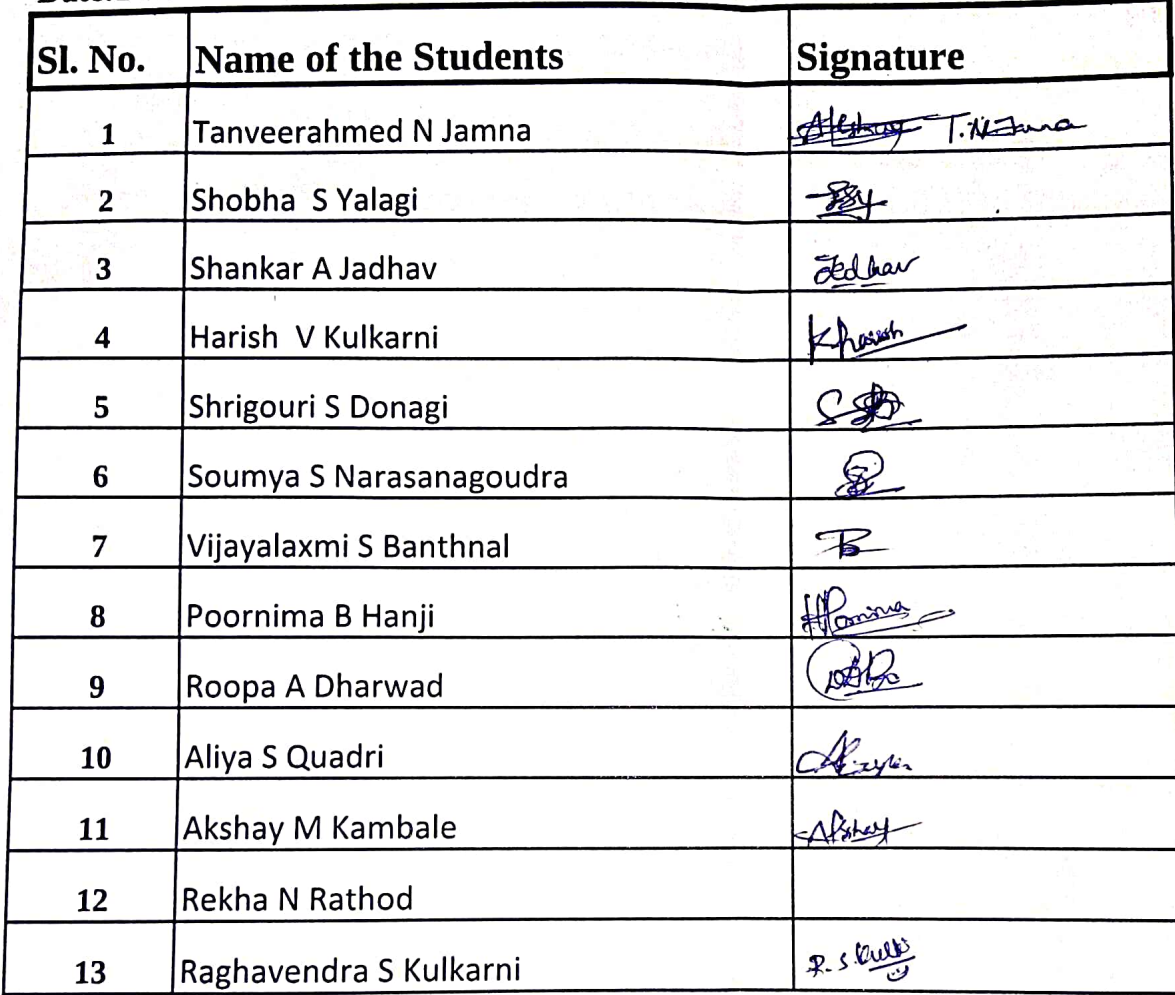 Sl. No. Name of the Students Signature
1 Tanveerahmed N Jamna Akshay T.N.Jamna
2 Shobha S Yalagi
3 Shankar A Jadhav Jadhav
4 Harish V Kulkarni KHarish
5 Shrigouri S Donagi
6 Soumya S Narasanagoudra
7 Vijayalaxmi S Banthnal
8 Poornima B Hanji
9 Roopa A Dharwad
10 Aliya S Quadri
11 Akshay M Kambale Akshay
12 Rekha N Rathod
13 Raghavendra S Kulkarni R.S.Kulk